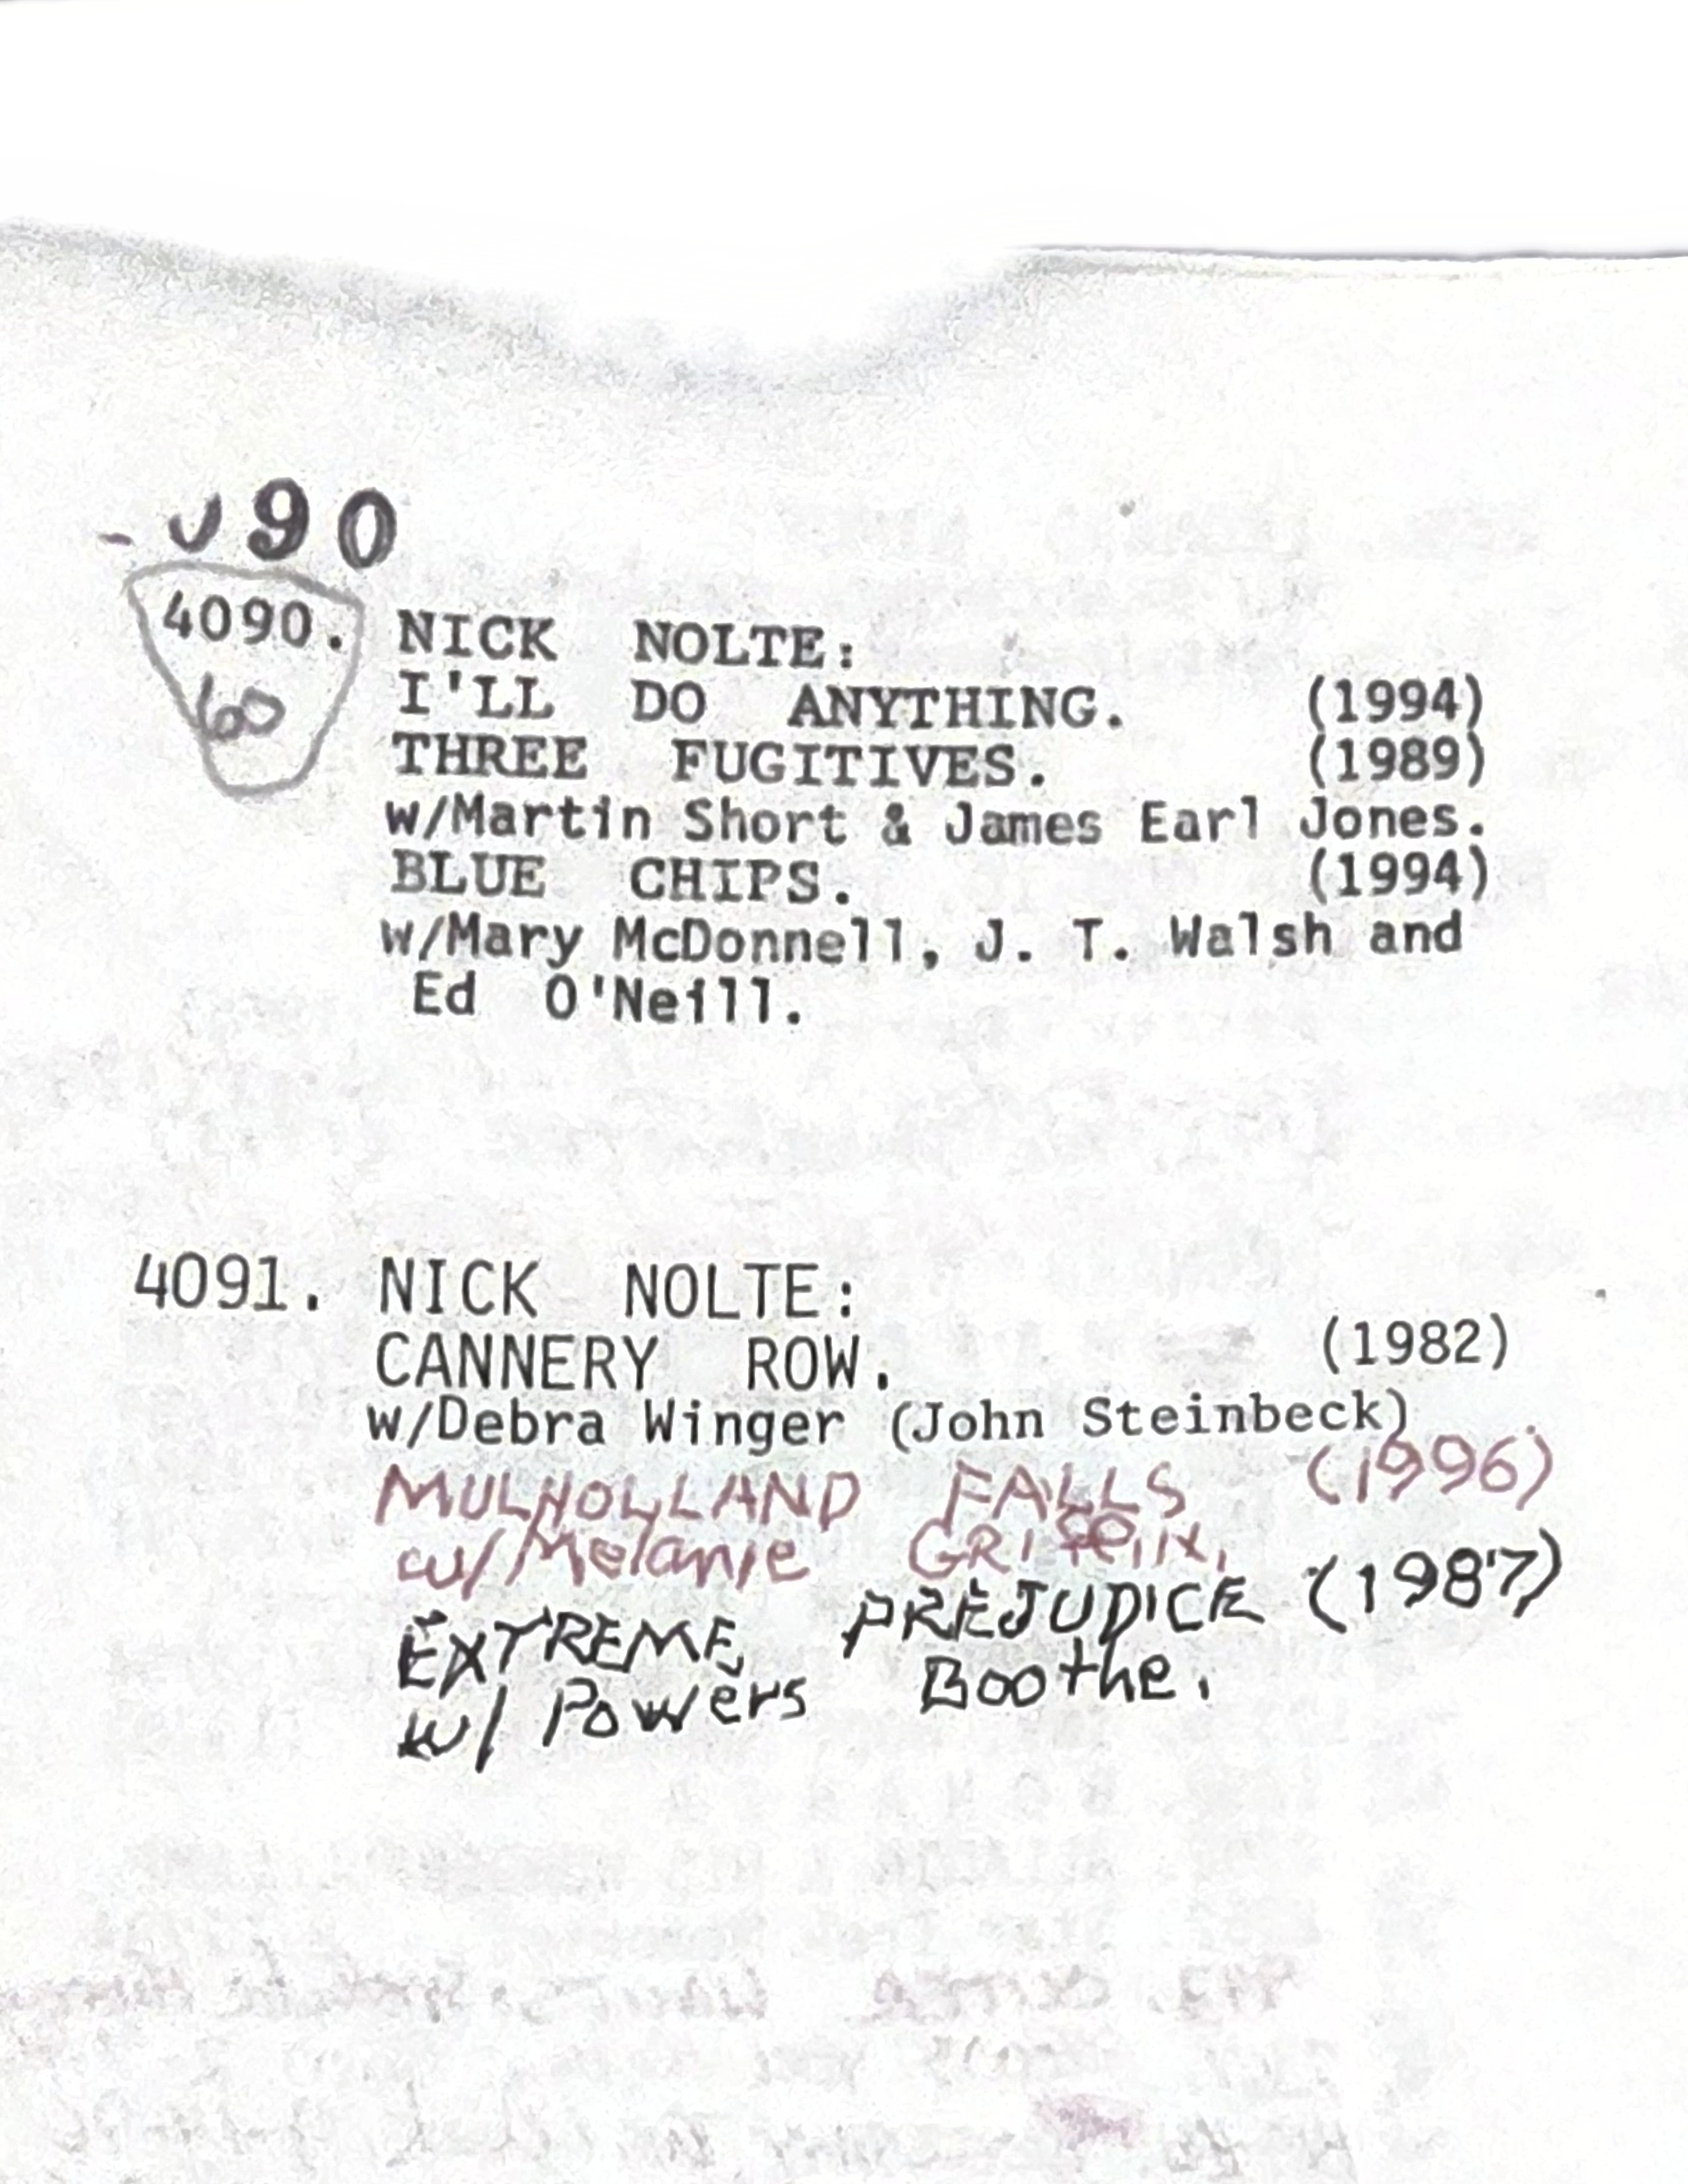 090
4090. NICK NOLTE:
60
I'LL DO ANYTHING. (1994)
THREE FUGITIVES. (1989)
w/Martin Short & James Earl Jones.
BLUE CHIPS. (1994)
w/Mary McDonnell, J. T. Walsh and
Ed O'Neill.
4091. NICK NOLTE:
CANNERY ROW. (1982)
w/Debra Winger (John Steinbeck)
MULHOLLAND FALLS (1996)
w/Melanie GRIffIN.
EXTREME PREJUDICE (1987)
w/ Powers Boothe.